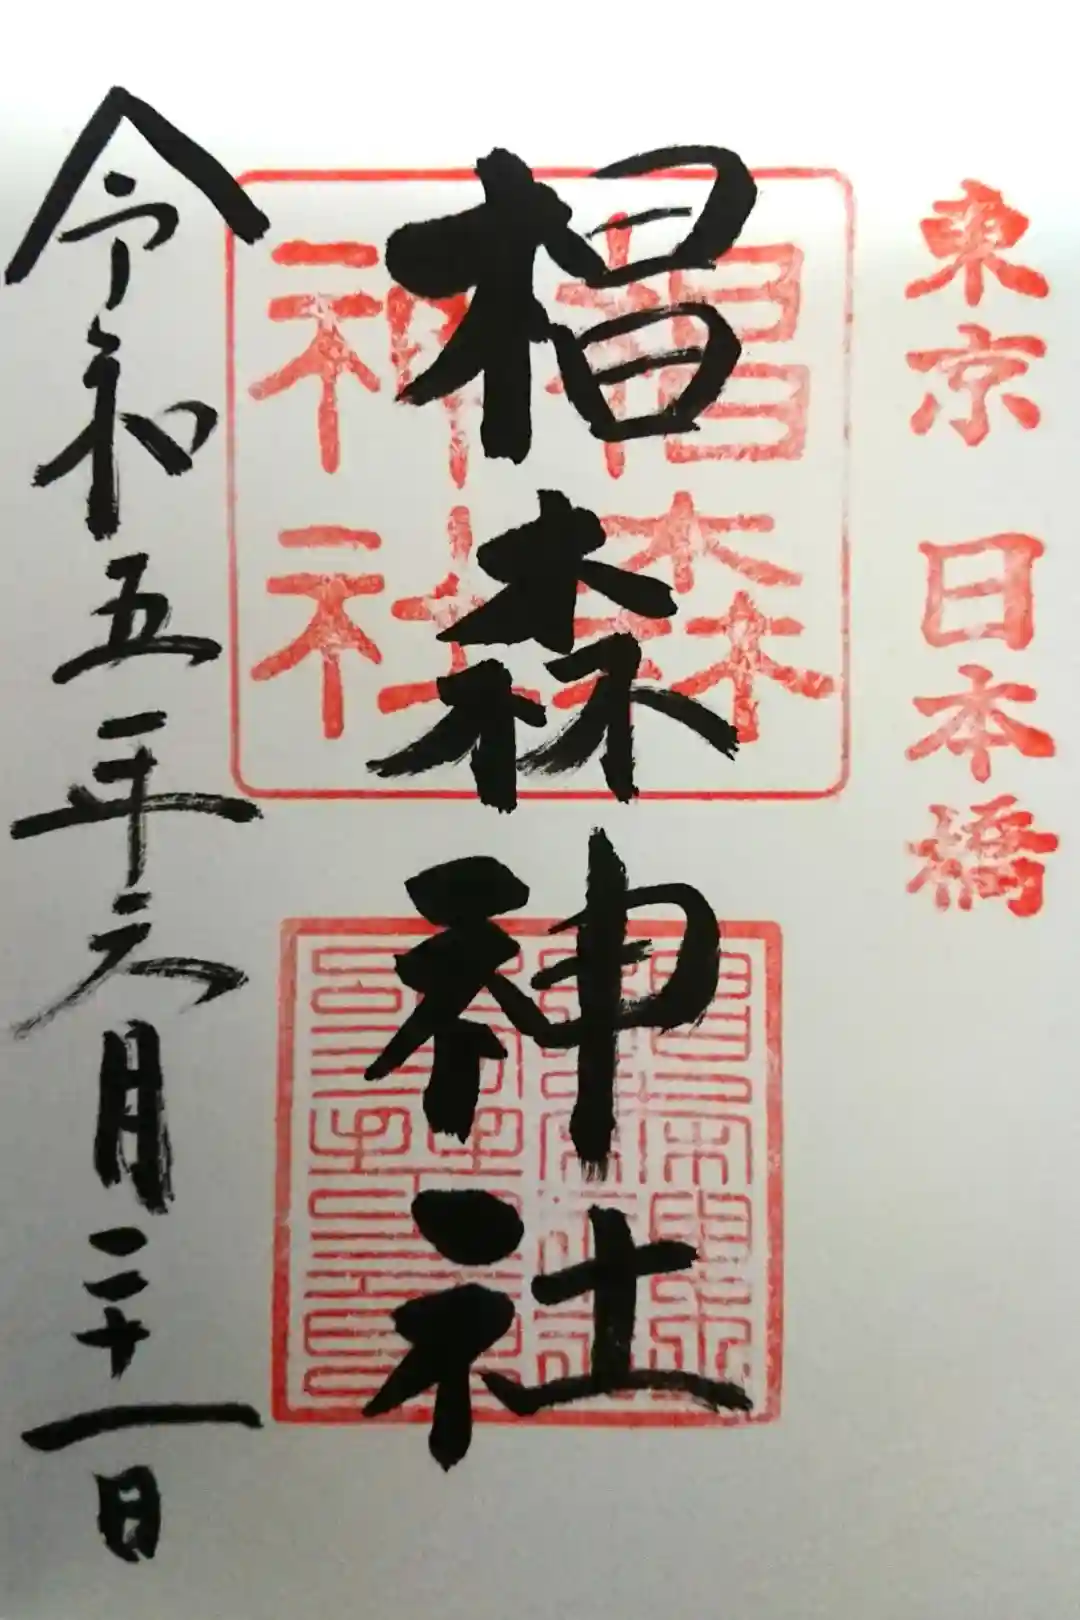 東京 日本橋
椙森神社
椙森
神社
令和五年六月二十一日